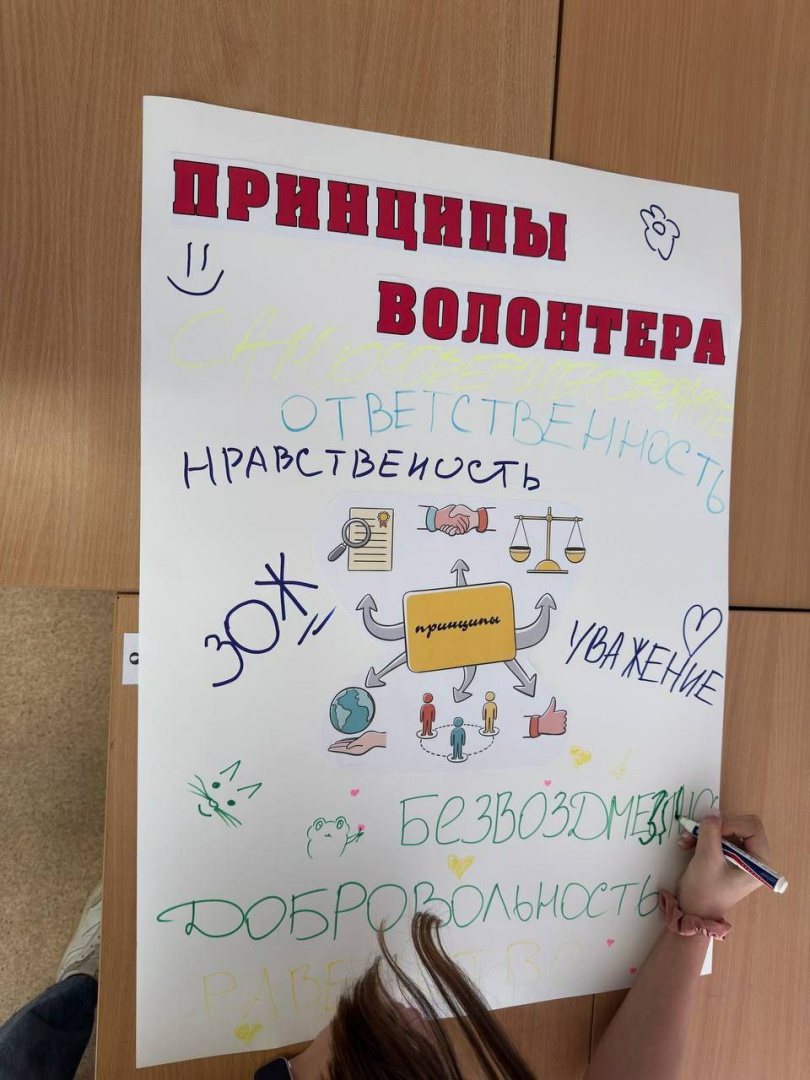 ПРИНЦИПЫ
ВОЛОНТЕРА
САМОСОВЕРШЕНСТВОВАНИЕ
ОТВЕТСТВЕННОСТЬ
НРАВСТВЕНОСТЬ
ЗОЖ
принципы
УВАЖЕНИЕ
ДОБРОВОЛЬНОСТЬ